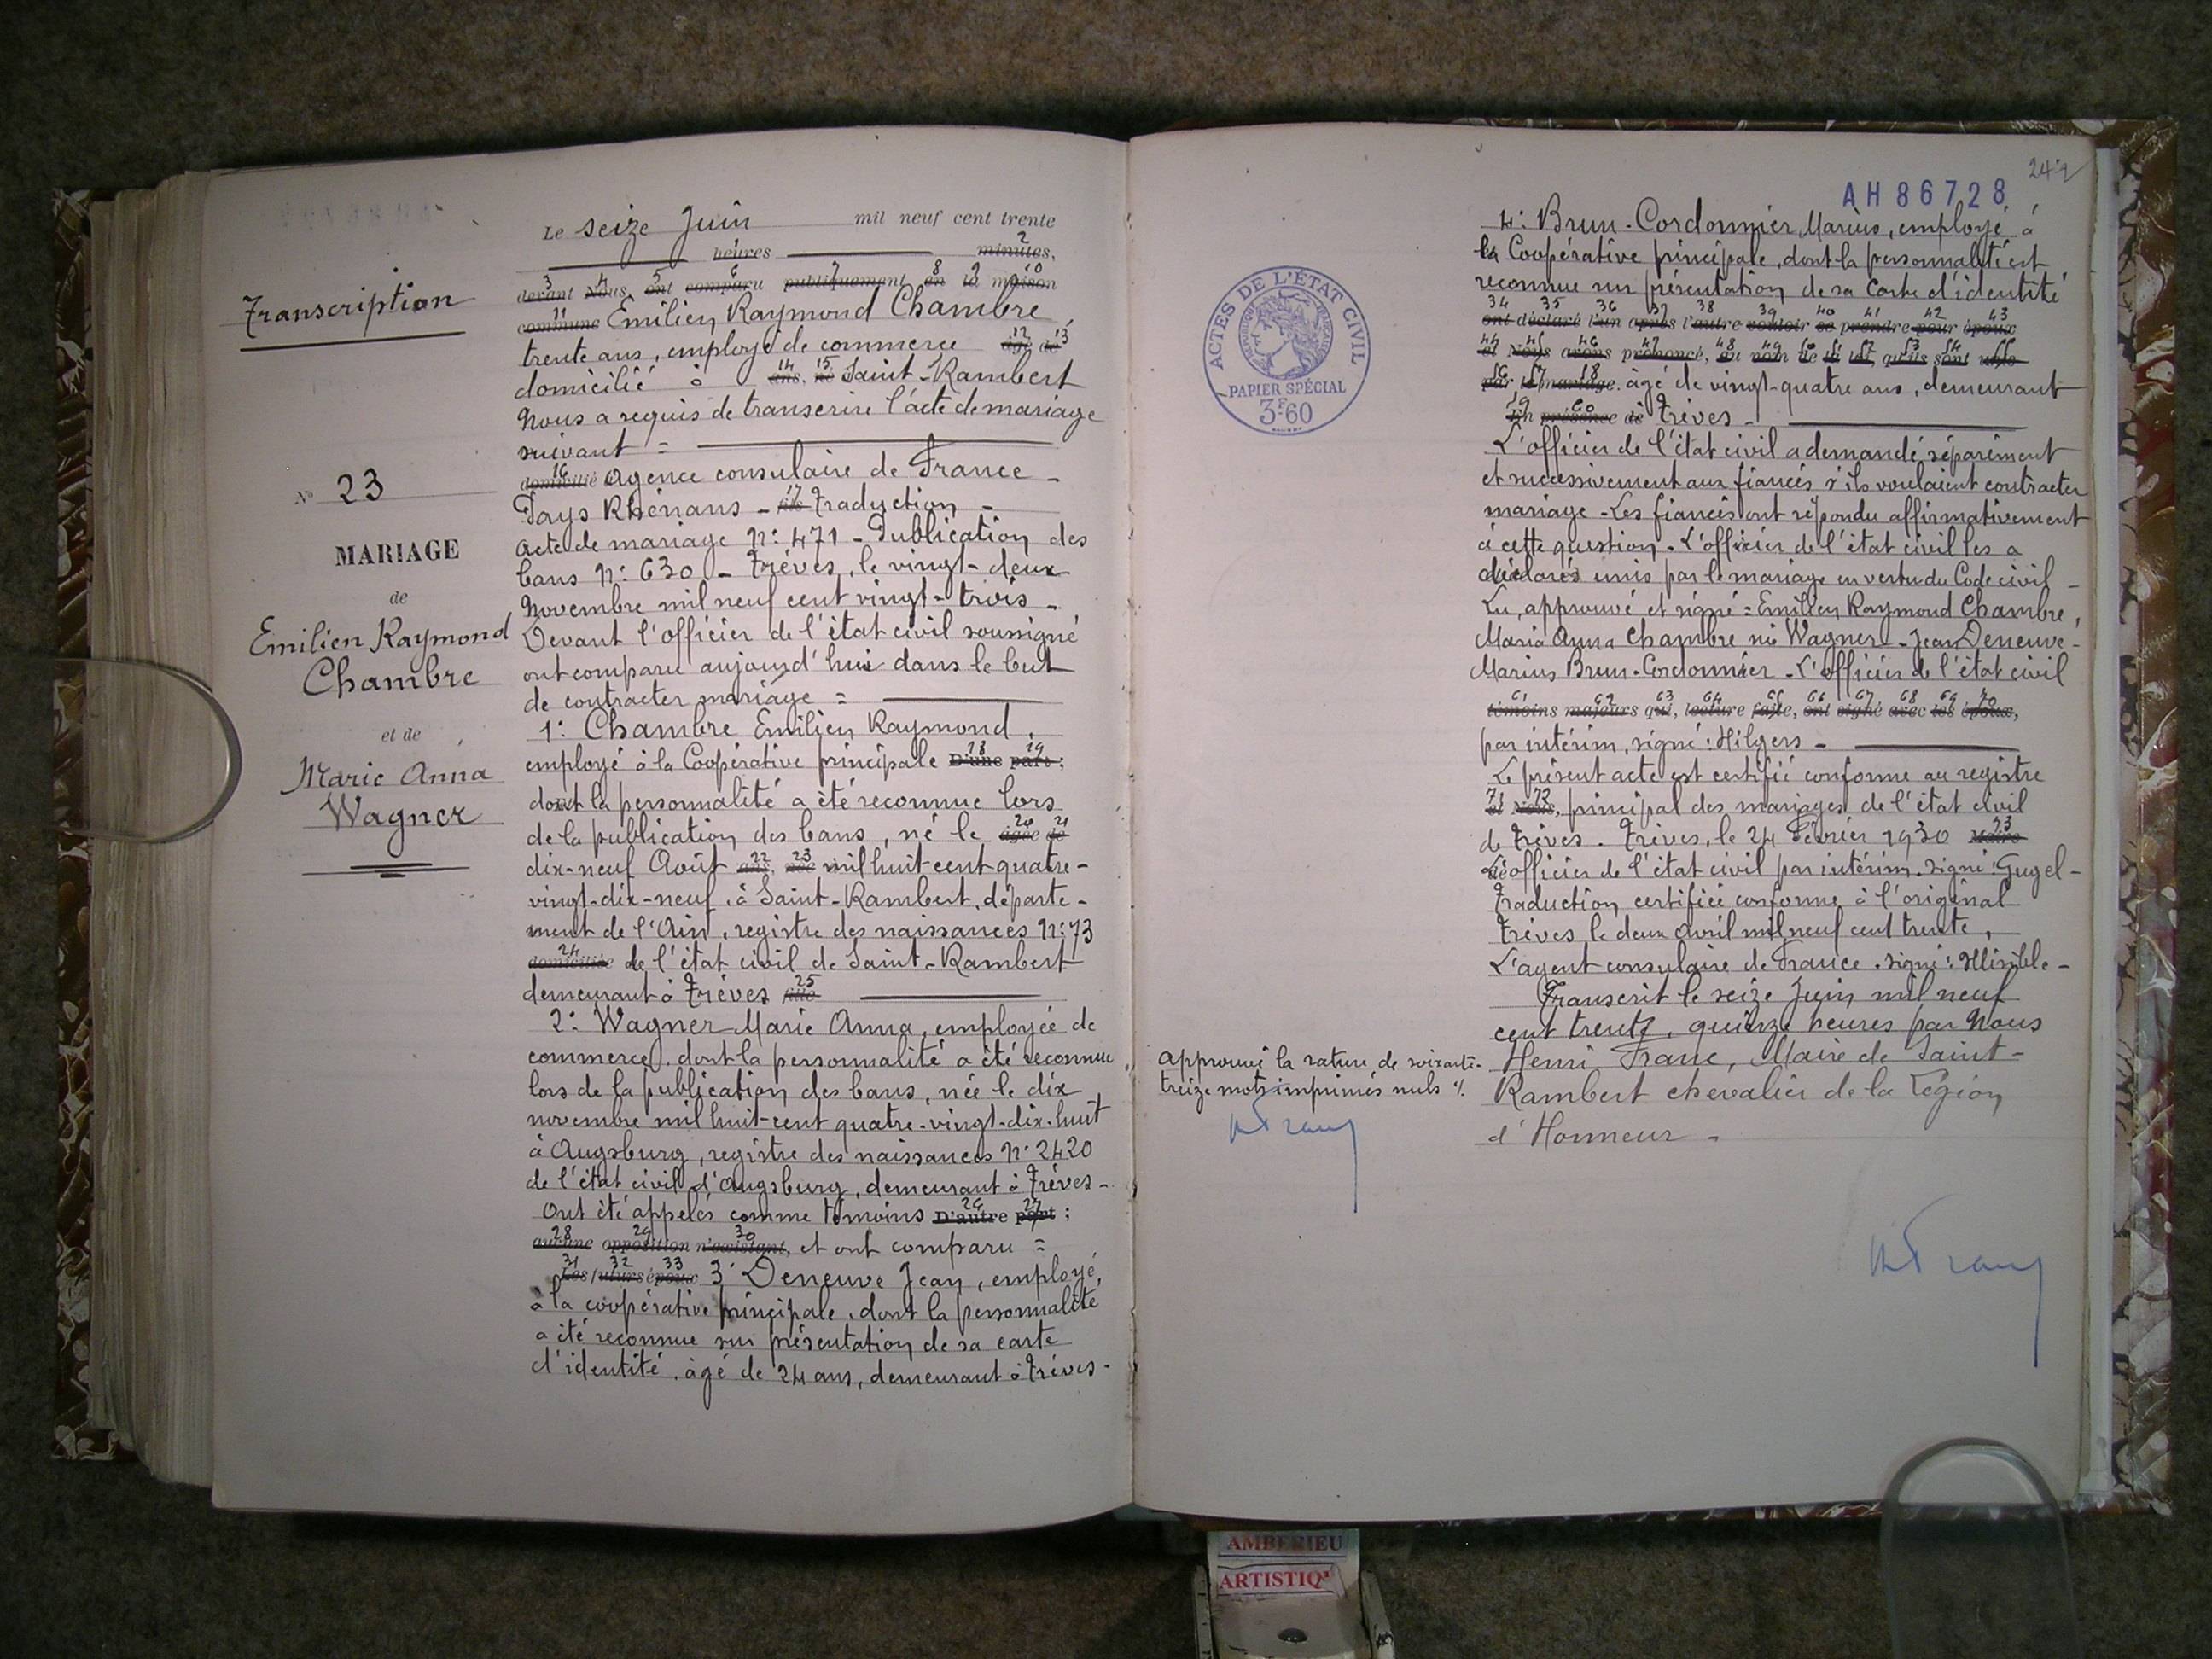 Transcription
N° 23
MARIAGE
de
Emilien Raymond
Chambre
et de
Marie Anna
Wagner
Le seize Juin mil neuf cent trente
heures minutes, 2
3 4 5 6 7 8 9 10
devant Nous, ont comparu publiquement en la maison
11 commune Emilien Raymond Chambre,
trente ans, employé de commerce âgé de 12 13
domicilié à ans, né 14 15 Saint-Rambert
Nous a requis de transcrire l'acte de mariage
suivant =
16 domicilié Agence consulaire de France -
Pays Rhénans - fils 17 Traduction -
Acte de mariage N: 471 - Publication des
bans N: 630 - Trèves, le vingt-deux
Novembre mil neuf cent vingt-trois -
Devant l'officier de l'état civil soussigné
ont comparu aujourd'hui dans le but
de contracter mariage =
1: Chambre Emilien Raymond,
employé à la Coopérative principale D'une part; 18 19
dont la personnalité a été reconnue lors
de la publication des bans, né le âgée de 20 21
dix-neuf Août ans, née 22 23 mil huit cent quatre-
vingt-dix-neuf, à Saint-Rambert, départe-
ment de l'Ain, registre des naissances N: 73
24 domiciliée de l'état civil de Saint-Rambert
demeurant à Trèves fille 25
2: Wagner Marie Anna, employée de
commerce, dont la personnalité a été reconnue
lors de la publication des bans, née le dix
novembre mil huit-cent quatre-vingt-dix-huit
à Augsburg, registre des naissances N: 2420
de l'état civil d'Augsburg, demeurant à Trèves -
Ont été appelés comme témoins D'autre part; 26 27
28 29 30 aucune opposition n'existant, et ont comparu =
31 32 33 Les futurs époux 3: Deneuve Jean, employé,
à la coopérative principale, dont la personnalité
a été reconnue sur présentation de sa carte
d'identité, âgé de 24 ans, demeurant à Trèves -
ACTES DE L'ÉTAT CIVIL
PAPIER SPÉCIAL
3F.60
AH 86728
4: Brun-Cordonnier Marius, employé à
la Coopérative principale, dont la personnalité est
reconnue sur présentation de sa Carte d'identité
34 35 36 37 38 39 40 41 42 43
ont déclaré l'un après l'autre vouloir se prendre pour époux
44 45 46 47 48 49 50 51 52 53 54 55
et Nous avons prononcé, au nom de la loi, qu'ils sont unis
56 57 58 par le mariage. âgé de vingt-quatre ans, demeurant
59 60 En présence de Trèves -
L'officier de l'état civil a demandé séparément
et successivement aux fiancés s'ils voulaient contracter
mariage - Les fiancés ont répondu affirmativement
à cette question - L'officier de l'état civil les a
déclarés unis par le mariage en vertu du Code civil -
Lu, approuvé et signé = Emilien Raymond Chambre,
Maria Anna Chambre née Wagner - Jean Deneuve -
Marius Brun-Cordonnier - L'officier de l'état civil
61 62 63 64 65 66 67 68 69 70
témoins majeurs qui, lecture faite, ont signé avec les époux,
par intérim, signé: Hilgers -
Le présent acte est certifié conforme au registre
71 72 et Nous, principal des mariages de l'état civil
de Trèves. Trèves, le 24 Février 1930 Maire 73
L'officier de l'état civil par intérim. signé: Gugel -
Traduction certifiée conforme à l'original
Trèves le deux avril mil neuf cent trente,
L'agent consulaire de France. signé: Illisible -
Transcrit le seize Juin mil neuf
cent trente, quinze heures par Nous
Henri Franc, Maire de Saint-
Rambert chevalier de la Légion
d'Honneur -
Approuvé la rature de soixante-
treize mots imprimés nuls %.
H Franc
H Franc
AMBERIEU
ARTISTIQ